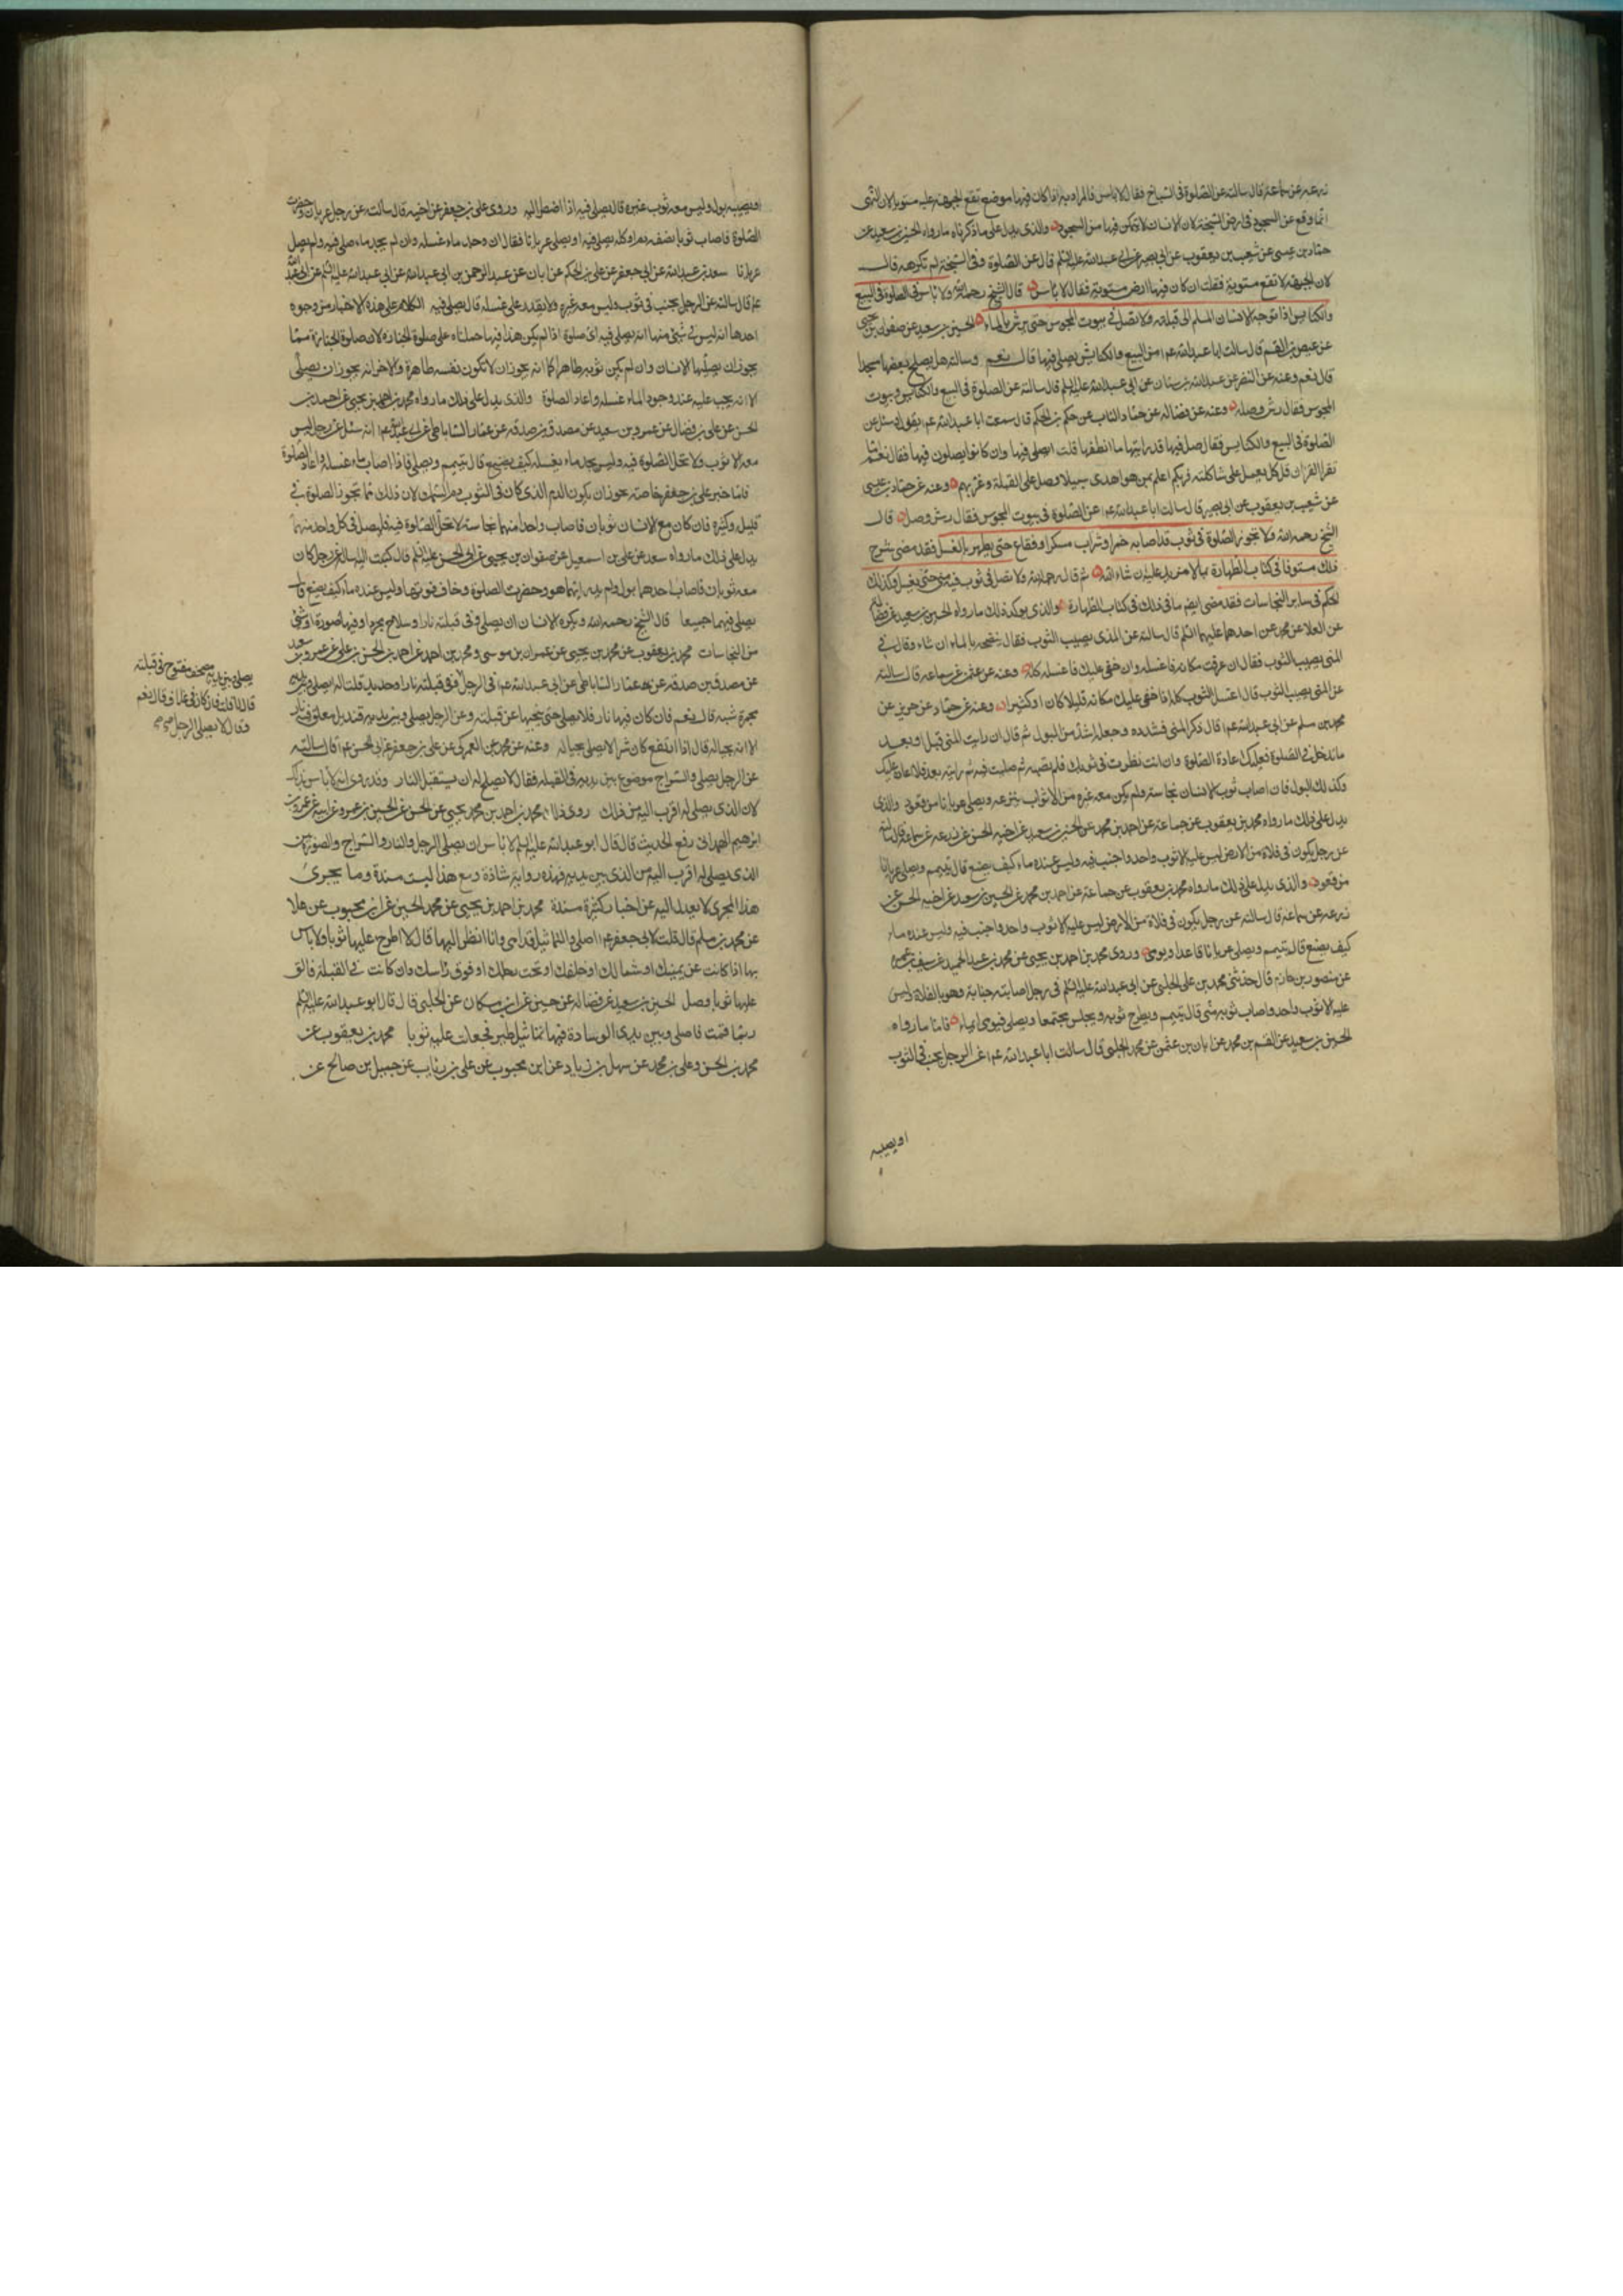 زرعه عن سماعة قال سالته عن الصلوة فى السباخ فقال لا باس فالمراد به اذا كان فيها موضع تقع الجبهة عليه مستويا لان النهى
انما وقع عن السجود فى ارض السبخة لان الانسان لا يتمكن فيها من السجود والذى يدل على ما ذكرناه ما رواه الحسين بن سعيد عن
حماد بن عيسى عن شعيب بن يعقوب عن ابى بصير عن ابى عبد الله عليه السلم قال عن الصلوة فى السبخة لم تكرهه قال
لان الجبهة لا تقع مستوية فقلت ان كان فيها ارض مستوية فقال لا باس قال الشيخ رحمه الله ولا باس فى الصلوة فى البيع
والكنايس اذا توجه الانسان المسلم الى قبلته ولا تصل فى بيوت المجوس حتى ترش بالماء الحسين بن سعيد عن صفوان بن يحيى
عن عيص بن القسم قال سالت ابا عبد الله عم عن البيع والكنايس يصلى فيها قال نعم وسالته هل يصلح بعضها مسجدا
قال نعم وعنه عن النضر عن عبد الله بن سنان عن ابى عبد الله عليه السلم قال سالته عن الصلوة فى البيع والكنايس وبيوت
المجوس فقال رش وصله وعنه عن فضاله عن حماد الناب عن حكم بن الحكم قال سمعت ابا عبد الله عم يقول وسئل عن
الصلوة فى البيع والكنايس فقال صل فيها قد رايتها ما انظفها قلت ايصلى فيها وان كانوا يصلون فيها فقال نعم اما
تقرا القران قل كل يعمل على شاكلته فربكم اعلم بمن هو اهدى سبيلا وصل على القبلة وغربهم وعنه عن حماد بن عيسى
عن شعيب بن يعقوب عن ابى بصير قال سالت ابا عبد الله عم عن الصلوة فى بيوت المجوس فقال رش وصل قال
الشيخ رحمه الله ولا تجوز الصلوة فى ثوب قد اصابه خمر او شراب مسكر او فقاع حتى يطهر بالغسل فقد مضى شرح
ذلك مستوفا فى كتاب الطهارة بما لا مزيد عليه ان شاء الله ثم قال رحمه الله ولا تصل فى ثوب فيه منى حتى يغسل وكذلك
الحكم فى ساير النجاسات فقد مضى ايضم ما فى ذلك فى كتاب الطهارة والذى يوكد ذلك ما رواه الحسين بن سعيد عن فضاله
عن العلا عن محمد عن احدهما عليهما السلم قال سالته عن المذى يصيب الثوب فقال ينضحه بالماء ان شاء وقال فى
المنى يصيب الثوب فقال ان عرفت مكانه فاغسله وان خفى عليك فاغسله كله وعنه عن عثمن عن سماعه قال سالته
عن المنى يصيب الثوب قال اغسل الثوب كله اذا خفى عليك مكانه قليلا كان او كثيرا وعنه عن حماد عن حريز عن
محمد بن مسلم عن ابى عبد الله عم قال ذكر المنى فشدده وجعله اشد من البول ثم قال ان رايت المنى قبل او بعد
ما تدخل فى الصلوة فعليك اعادة الصلوة وان انت نظرت فى ثوبك فلم تصبه ثم صليت فيه ثم رايته بعد فلا اعادة عليك
وكذلك البول فان اصاب ثوب الانسان نجاسة ولم يكن معه غيره من الاثواب ينزعه ويصلى عريانا من قعود والذى
يدل على ذلك ما رواه محمد بن يعقوب عن جماعة عن احمد بن محمد عن الحسين بن سعيد عن اخيه الحسن عن زرعه عن سماعة قال سالته
عن رجل يكون فى فلاة من الارض ليس عليه الا ثوب واحد واجنب فيه وليس عنده ماء كيف يصنع قال يتيمم ويصلى عريانا
من قعود والذى يدل على ذلك ما رواه محمد بن يعقوب عن جماعة عن احمد بن محمد عن الحسين بن سعيد عن اخيه الحسن عن
زرعه عن سماعة قال سالته عن رجل يكون فى فلاة من الارض ليس عليه الا ثوب واحد واجنب فيه وليس عنده ماء
كيف يصنع قال يتيمم ويصلى عريانا قاعدا ويومى وروى محمد بن احمد بن يحيى عن محمد بن عبد الحميد عن سيف بن عميره
عن منصور بن حازم قال حدثنى محمد بن على الحلبى عن ابى عبد الله عليه السلم فى رجل اصابته جنابة وهو بالفلاة وليس
عليه الا ثوب واحد واصاب ثوبه منى قال يتيمم ويطرح ثوبه ويجلس مجتمعا ويصلى فيومى ايماء فاما ما رواه
الحسين بن سعيد عن القسم بن محمد عن ابان بن عثمن عن محمد الحلبى قال سالت ابا عبد الله عم عن الرجل يجنب فى الثوب
او يصيبه
او يصيبه بول وليس معه ثوب غيره قال يصلى فيه اذا اضطر اليه وروى على بن جعفر عن اخيه قال سالته عن رجل عريان وحضرت
الصلوة فاصاب ثوبا نصفه دم او كله يصلى فيه او يصلى عريانا فقال ان وجد ماء غسله وان لم يجد ماء صلى فيه ولم يصل
عريانا سعد بن عبد الله عن ابى جعفر عن على بن الحكم عن ابان عن عبد الرحمن بن ابى عبد الله عن ابى عبد الله عليه السلم
عم قال سالته عن الرجل يجنب فى ثوب وليس معه غيره ولا يقدر على غسله قال يصلى فيه الكلام على هذه الاخبار من وجوه
احدها انه ليس فى شئ منها انه يصلى فيه اى صلوة اذا لم يكن هذا فيها حملناه على صلوة الجنازه لان صلوة الجنازة مما
يجوز ان يصليها الانسان وان لم يكن ثوبه طاهرا كما انه يجوز ان لا تكون نفسه طاهرة والاخر انه يجوز ان يصلى
الا انه يجب عليه عند وجود الماء غسله واعاد الصلوة والذى يدل على ذلك ما رواه محمد بن احمد بن يحيى عن احمد بن
الحسن عن على بن فضال عن عمرو بن سعيد عن مصدق بن صدقه عن عمار الساباطى عن ابى عبد الله عم انه سئل عن رجل ليس
معه الا ثوب ولا تحل الصلوة فيه وليس يجد ماء يغسله كيف يصنع قال يتيمم ويصلى فاذا اصاب ماء غسله واعاد الصلوة
فاما خبر على بن جعفر خاصة يجوز ان يكون الدم الذى كان فى الثوب دم السمك لان ذلك مما تجوز الصلوة فى
قليله وكثيره فان كان مع الانسان ثوبان فاصاب واحدا منهما نجاسة لا تحل الصلوة فيه فليصل فى كل واحد منهما
يدل على ذلك ما رواه سعد عن على بن اسمعيل عن صفوان بن يحيى عن ابى الحسن عليه السلم قال كتبت اليه اساله عن رجل كان
معه ثوبان فاصاب احدهما بول ولم يدر ايهما هو وحضرت الصلوة وخاف فوتها وليس عنده ماء كيف يصنع قال
يصلى فيهما جميعا قال الشيخ رحمه الله ويكره الانسان ان يصلى وفى قبلته نار او سلاح مجرد او فيها صورة او شئ
من النجاسات محمد بن يعقوب عن محمد بن يحيى عن عمران بن موسى ومحمد بن احمد عن احمد بن الحسن بن على عن عمرو بن سعيد
عن مصدق بن صدقه عن عمار الساباطى عن ابى عبد الله عم فى الرجل وفى قبلته نار او حديد قلت اله يصلى وبين يديه
مجمرة شبه قال نعم فان كان فيها نار فلا يصلى حتى ينحيها عن قبلته وعن الرجل يصلى وبين يديه قنديل معلق فيه نار
الا انه بحياله قال اذا ارتفع كان شرا لا يصلى بحياله وعنه عن محمد عن العمركى عن على بن جعفر عن ابى الحسن عم قال سالته
عن الرجل يصلى والسراج موضوع بين يديه فى القبله فقال لا يصلح له ان يستقبل النار وقد روى انه لا باس بذلك
لان الذى يصلى له اقرب اليه من ذلك روى ذلك محمد بن احمد بن محمد يحيى عن الحسن عن الحسين بن عمرو عن ابيه عن عمرو بن
ابرهيم الهمدانى رفع الحديث قال قال ابو عبد الله عليه السلم لا باس ان يصلى الرجل والنار والسراج والصورة بين
الذى يصلى له اقرب اليه من الذى بين يديه فهذه رواية شاذة ومع هذا ليست مسندة وما يجرى
هذا المجرى لا يعدل اليه عن اخبار كثيرة مسندة محمد بن احمد بن يحيى عن محمد الحسين عن ابن محبوب عن علا
عن محمد بن مسلم قال قلت لابى جعفر عم اصلى والتماثيل قدامى وانا انظر اليها قال لا اطرح عليها ثوبا ولا باس
بها اذا كانت عن يمينك او شمالك او خلفك او تحت رجلك او فوق راسك وان كانت فى القبلة فالق
عليها ثوبا وصل الحسين بن سعيد عن فضاله عن حسين عن ابن مسكان عن الحلبى قال قال ابو عبد الله عليه السلم
ربما قمت فاصلى وبين يدى الوسادة فيها تماثيل طير فجعلت عليه ثوبا محمد بن يعقوب عن
محمد بن الحسن وعلى بن محمد عن سهل بن زياد عن ابن محبوب عن على بن رئاب عن جميل بن صالح عن
يصلى وبين يديه مصحف مفتوح فى قبلته
قال لا قلت فان كان فى غلاف قال نعم
وقال لا يصلى الرجل